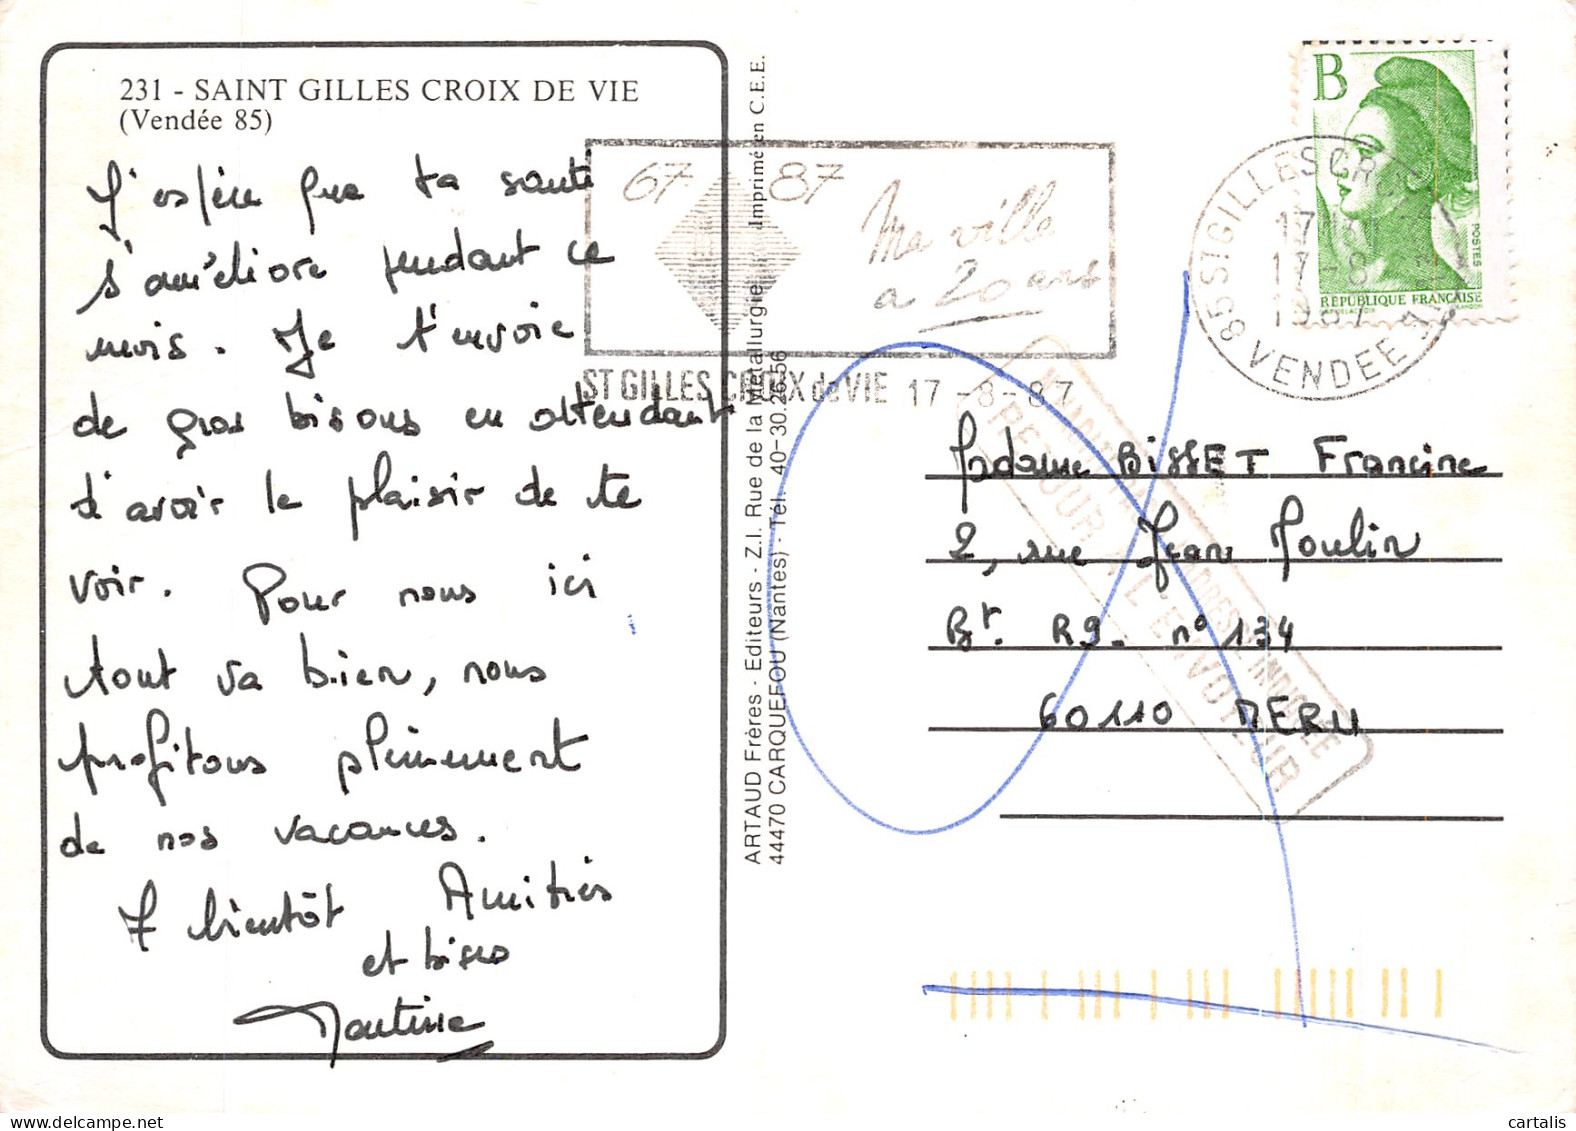 231 - SAINT GILLES CROIX DE VIE
(Vendée 85)
J'espère que ta santé
s'améliore pendant ce
mois. Je t'envoie
de gros bisous en attendant
d'avoir le plaisir de te
voir. Pour nous ici
tout va bien, nous
profitons pleinement
de nos vacances.
A bientôt Amitiés
et bises
Martine
ARTAUD Frères - Editeurs - Z.I. Rue de la Métallurgie Imprimé en C.E.E.
44470 CARQUEFOU (Nantes) - Tél. 40-30.26.56
67 87
Ma ville
a 20 ans
ST GILLES CROIX de VIE 17-8-87
B
POSTES
RÉPUBLIQUE FRANÇAISE
85 ST GILLES CROIX
17-8
1987
VENDEE
Madame BISSET Francine
2, rue Jean Moulin
Bt. R9. n° 134
60110 MERU
RETOUR A L'ENVOYEUR
cartalis